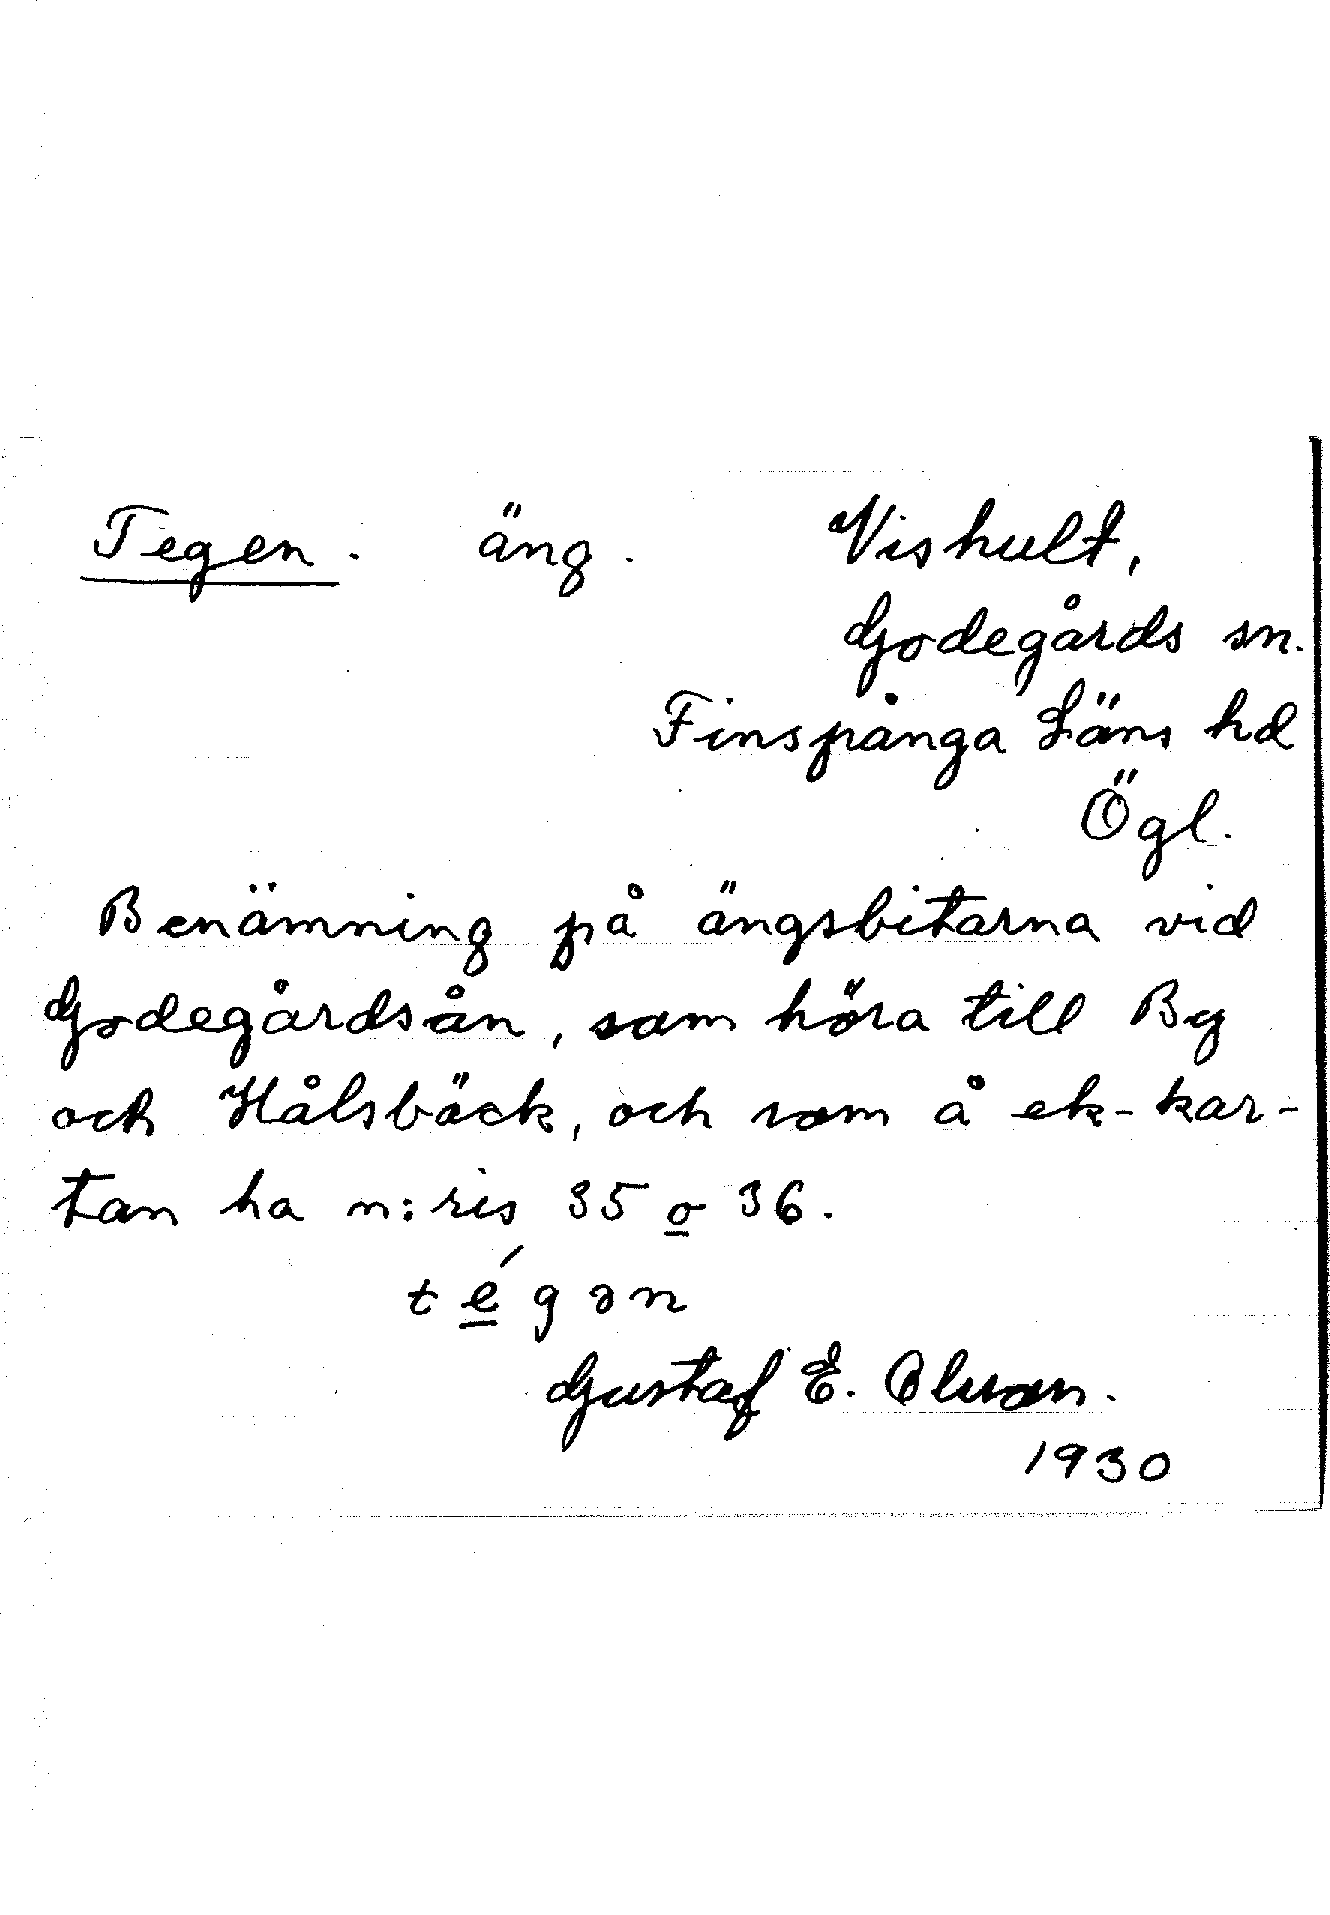 Tegen. äng. Vishult,
Godegårds sn.
Finspånga Läns hd
Ögl.
Benämning på ängsbitarna vid
Godegårdsån, som höra till By
och Hålsbäck, och som å ek-kar-
tan ha n:ris 35 o 36.
tégən
Gustaf E.
1930